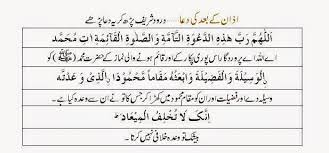 اذان کے بعد کی دعا - درود شریف پڑھ کر یہ دعا پڑھے
اَللّٰهُمَّ رَبَّ هٰذِهِ الدَّعْوَةِ التَّآمَّةِ وَالصَّلٰوةِ الْقَآئِمَةِ اٰتِ مُحَمَّدَ
اے اللہ اے پروردگار اس پوری پکار کے اور قائم ہونے والی نماز کے حضرت محمد (ﷺ) کو
نِالْوَسِيْلَةَ وَالْفَضِيْلَةَ وَابْعَثْهُ مَقَاماً مَّحْمُوْدَا نِالَّذِىْ وَعَدْتَّهٗ
وسیلہ دے اور فضیلت اور ان کو مقام محمود میں کھڑا کر جس کا تو نے ان سے وعدہ کیا ہے۔
اِنَّكَ لَا تُخْلِفُ الْمِيْعَادَ ط
بیشک تو وعدہ خلافی نہیں کرتا۔